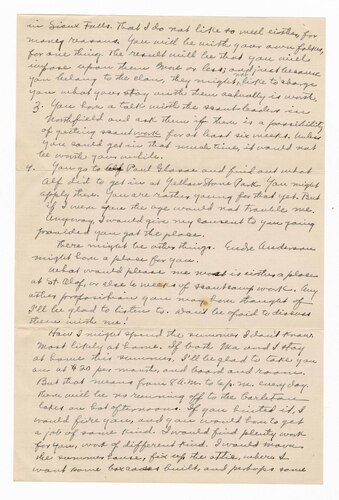 in Sioux Falls. That I do not like so well either, for
money reasons. You will be with your own folks,
for one thing. The result will be that you will
impose upon them more or less, and just because
you belong to the clan, they might not like to charge
you what your stay with them actually is worth.
3. You have a talk with the scout leaders in
Northfield and ask them if there is a possibility
of getting scout work for at least six weeks. Unless
you could get in that much time, it would not
be worth your while.
4. You go to Paul Glasoe and find out what
Alf did to get in at Yellow Stone Park. You might
apply there. You are rather young for that yet. But
if I were you the age would not trouble me.
Anyway, I would give my consent to you going
provided you got the place.
There might be other things. Endre Anderson
might have a place for you.
What would please me most is either a place
at St. Olaf, or else 6 weeks of scout camp work. Any
other proposition you may have thought of
I'll be glad to listen to. Don't be afraid to discuss
them with me!
How I might spend the summer I don't know.
Most likely at home. If both Ma and I stay
at home this summer, I'll be glad to take you
on at $20 per month, and board and room.
But that means from 8 A.M. to 6 p.m. every day.
There will be no running off to the Carleton
lakes on hot afternoons. If you insisted it, I
would fire you, and you would have to get
a job of some kind. I would find plenty work
for you, work of different kind. I would move
the summer house, fix up the attic, where I
want some bookcases built, and perhaps some